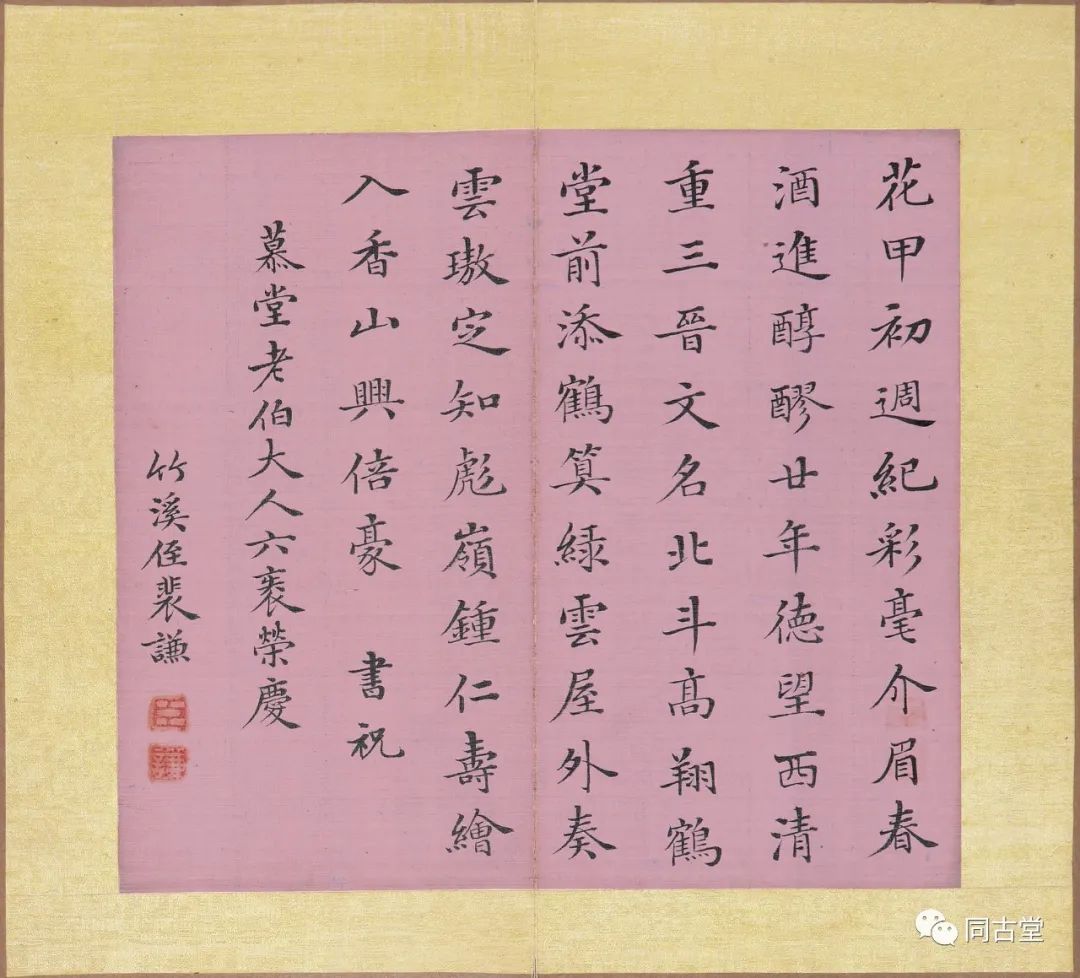 花甲初週紀彩毫介眉春
酒進醇醪廿年德望西清
重三晉文名北斗高翔鶴
堂前添鶴筭緑雲屋外奏
雲璈定知彪嶺鍾仁壽繪
入香山興倍豪　書祝
慕堂老伯大人六袠榮慶
竹溪侄裴謙
臣
謙
同古堂